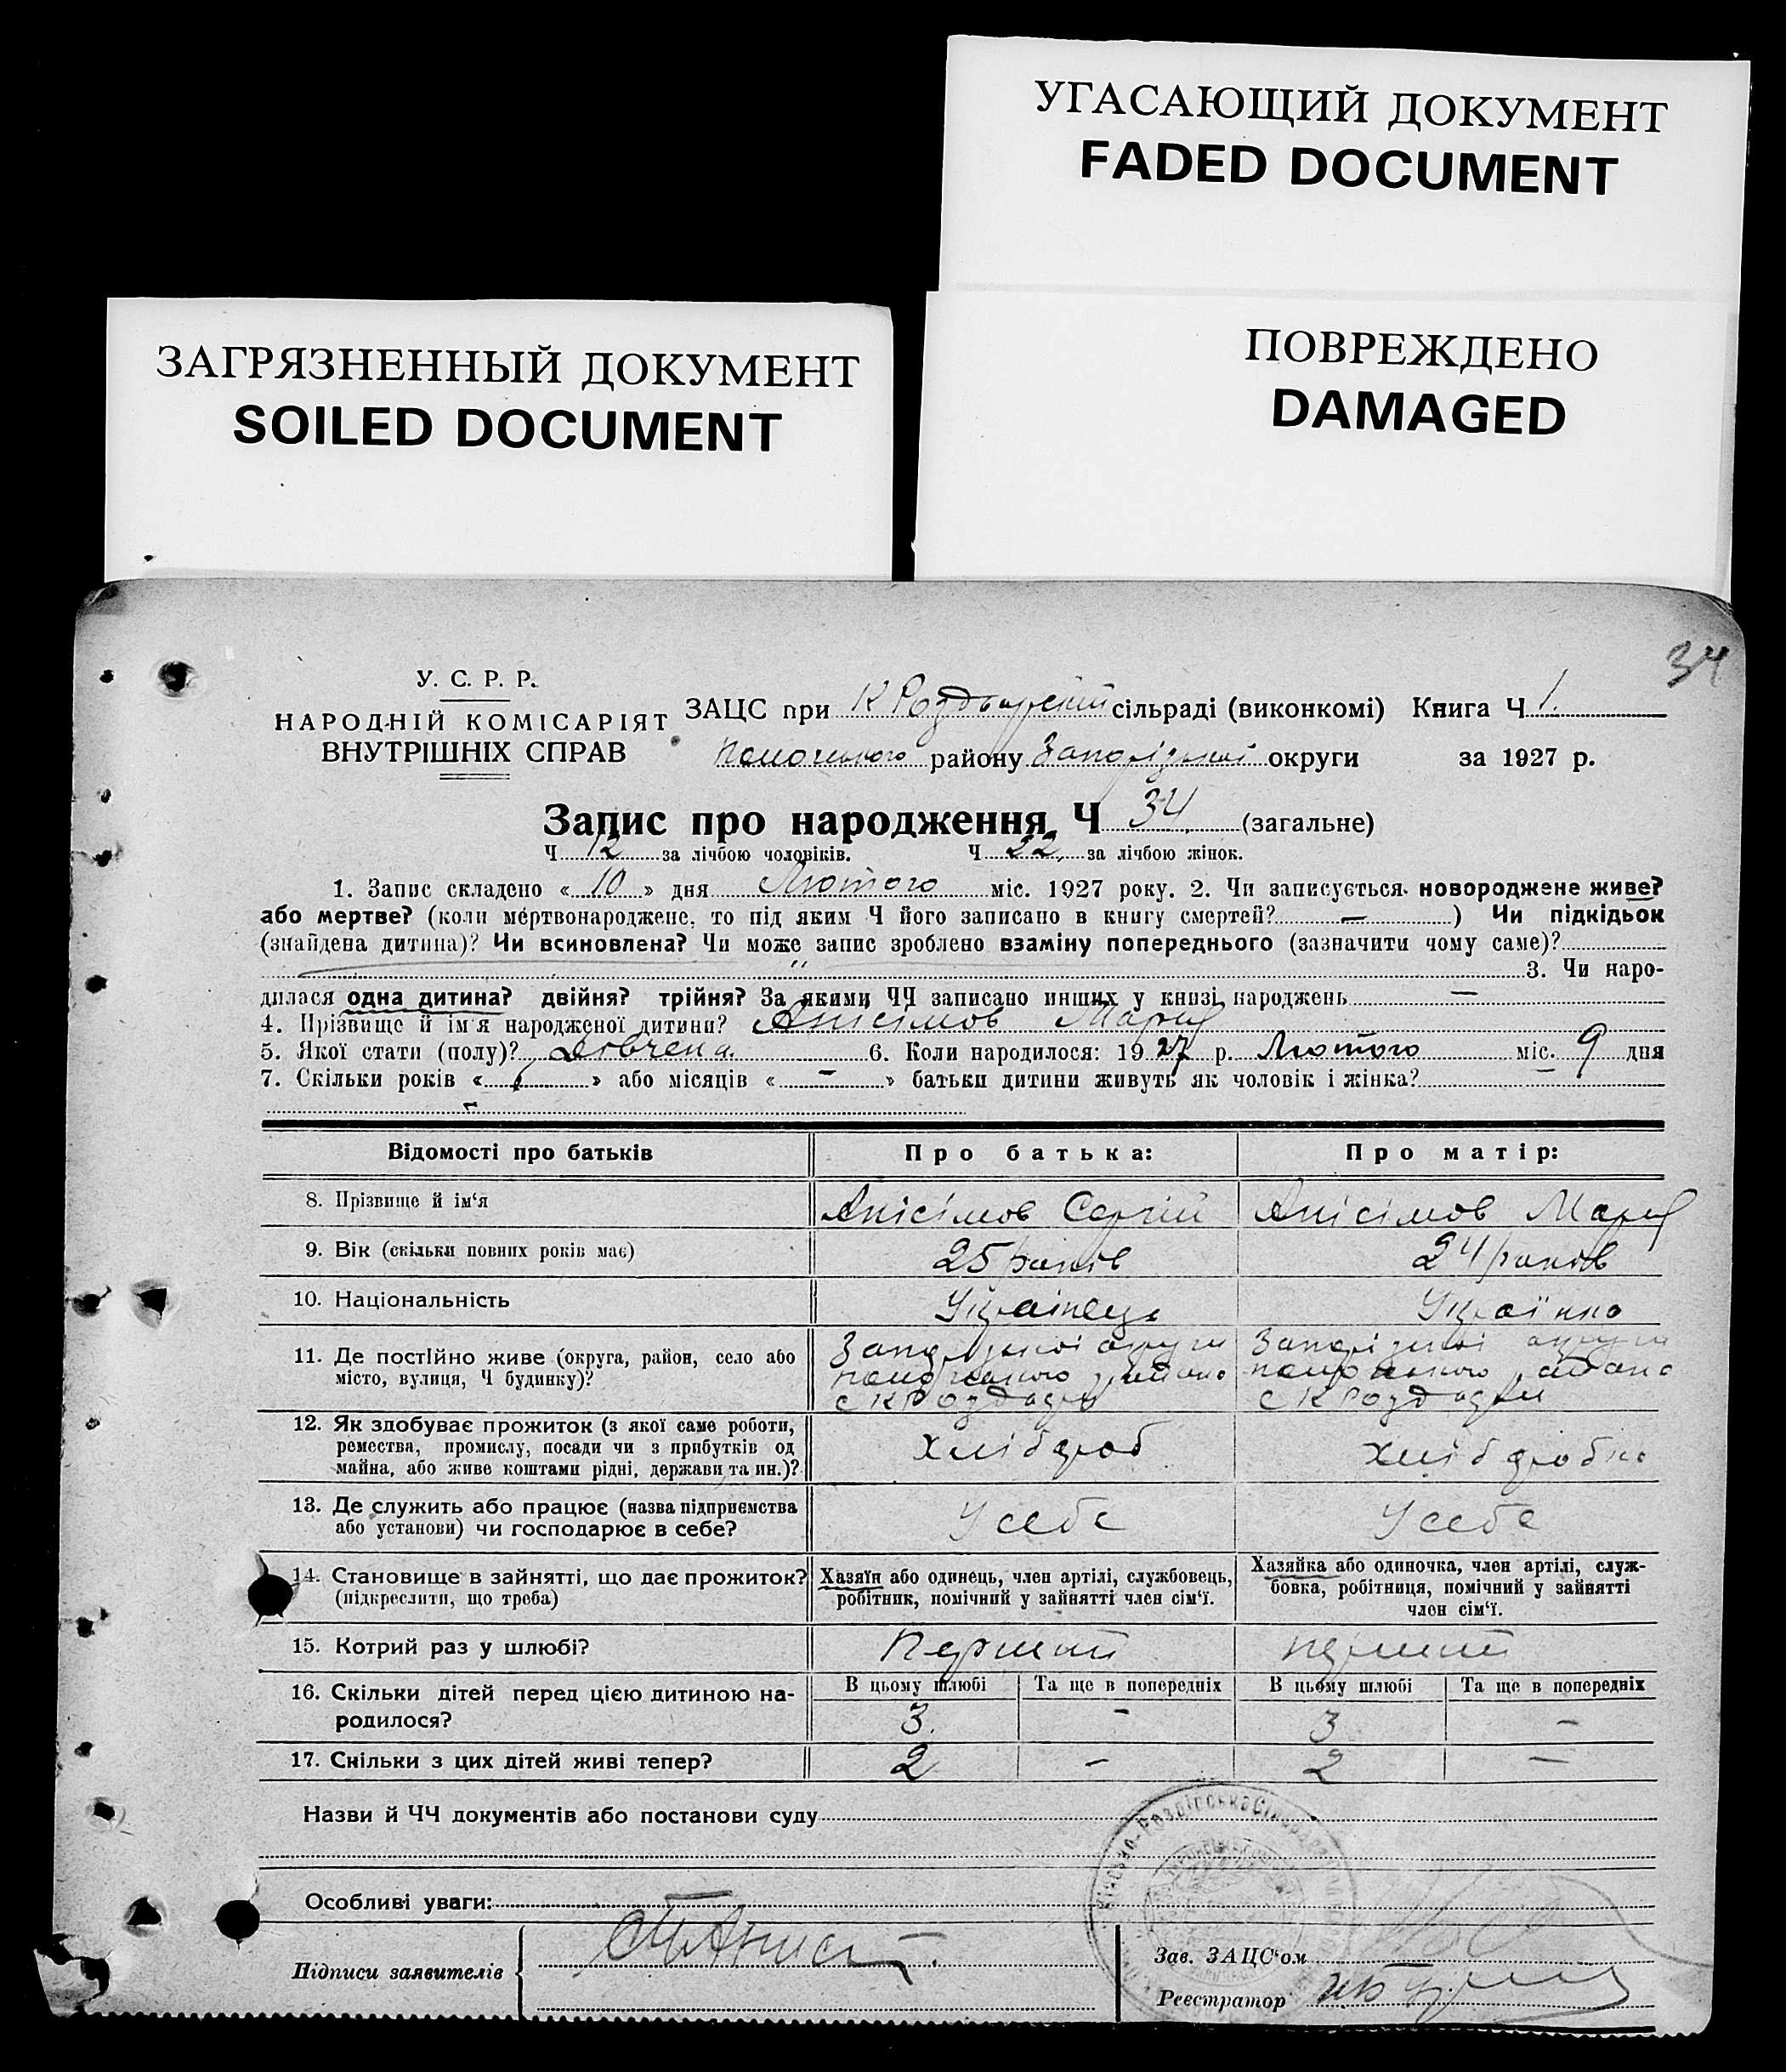 УГАСАЮЩИЙ ДОКУМЕНТ
FADED DOCUMENT
ЗАГРЯЗНЕННЫЙ ДОКУМЕНТ
SOILED DOCUMENT
ПОВРЕЖДЕНО
DAMAGED
34
У. С. Р. Р.
НАРОДНІЙ КОМІСАРІЯТ
ВНУТРІШНІХ СПРАВ
ЗАЦС при сільраді (виконкомі) Книга Ч 1.
району Запорізької округи за 1927 р.
Запис про народження Ч 34 (загальне)
Ч 12 за лічбою чоловіків. Ч 22. за лічбою жінок.
1. Запис складено « 10 » дня Лютого міс. 1927 року. 2. Чи записується новороджене живе?
або мертве? (коли мертвонароджене, то під яким Ч його записано в книгу смертей? — ) Чи підкідьок
(знайдена дитина)? Чи всиновлена? Чи може запис зроблено взаміну попереднього (зазначити чому саме)?
3. Чи наро-
дилася одна дитина? двійня? трійня? За якими ЧЧ записано инших у книзі народжень —
4. Прізвище й ім'я народженої дитини? Анісімов Марія
5. Якої стати (полу)? Дівчена. 6. Коли народилося: 1927 р. Лютого міс. 9 дня
7. Скільки років « » або місяців « — » батьки дитини живуть як чоловік і жінка?
Відомості про батьків Про батька: Про матір:
8. Прізвище й ім'я Анісімов Сергій Анісімов Марія
9. Вік (скільки повних років має) 25 років 24 років
10. Національність Українець Українка
11. Де постійно живе (округа, район, село або
місто, вулиця, Ч будинку)?
Запорізької округи Запорізької округи
12. Як здобуває прожиток (з якої саме роботи,
ремества, промислу, посади чи з прибутків од
майна, або живе коштами рідні, держави та ин.)?
Хлібороб Хліборобка
13. Де служить або працює (назва підприємства
або установи) чи господарює в себе?
У себе У себе
14. Становище в зайнятті, що дає прожиток?
(підкреслити, що треба)
Хазяїн або одинець, член артілі, службовець,
робітник, помічний у зайнятті член сім'ї.
Хазяйка або одиночка, член артілі, служ-
бовка, робітниця, помічний у зайнятті
член сім'ї.
15. Котрий раз у шлюбі? Перший перший
16. Скільки дітей перед цією дитиною на-
родилося?
В цьому шлюбі Та ще в попередніх В цьому шлюбі Та ще в попередніх
3. - 3 —
17. Скільки з цих дітей живі тепер? 2 — 2 —
Назви й ЧЧ документів або постанови суду
Особливі уваги:
Підписи заявителів
Зав. ЗАЦС'ом
Реєстратор